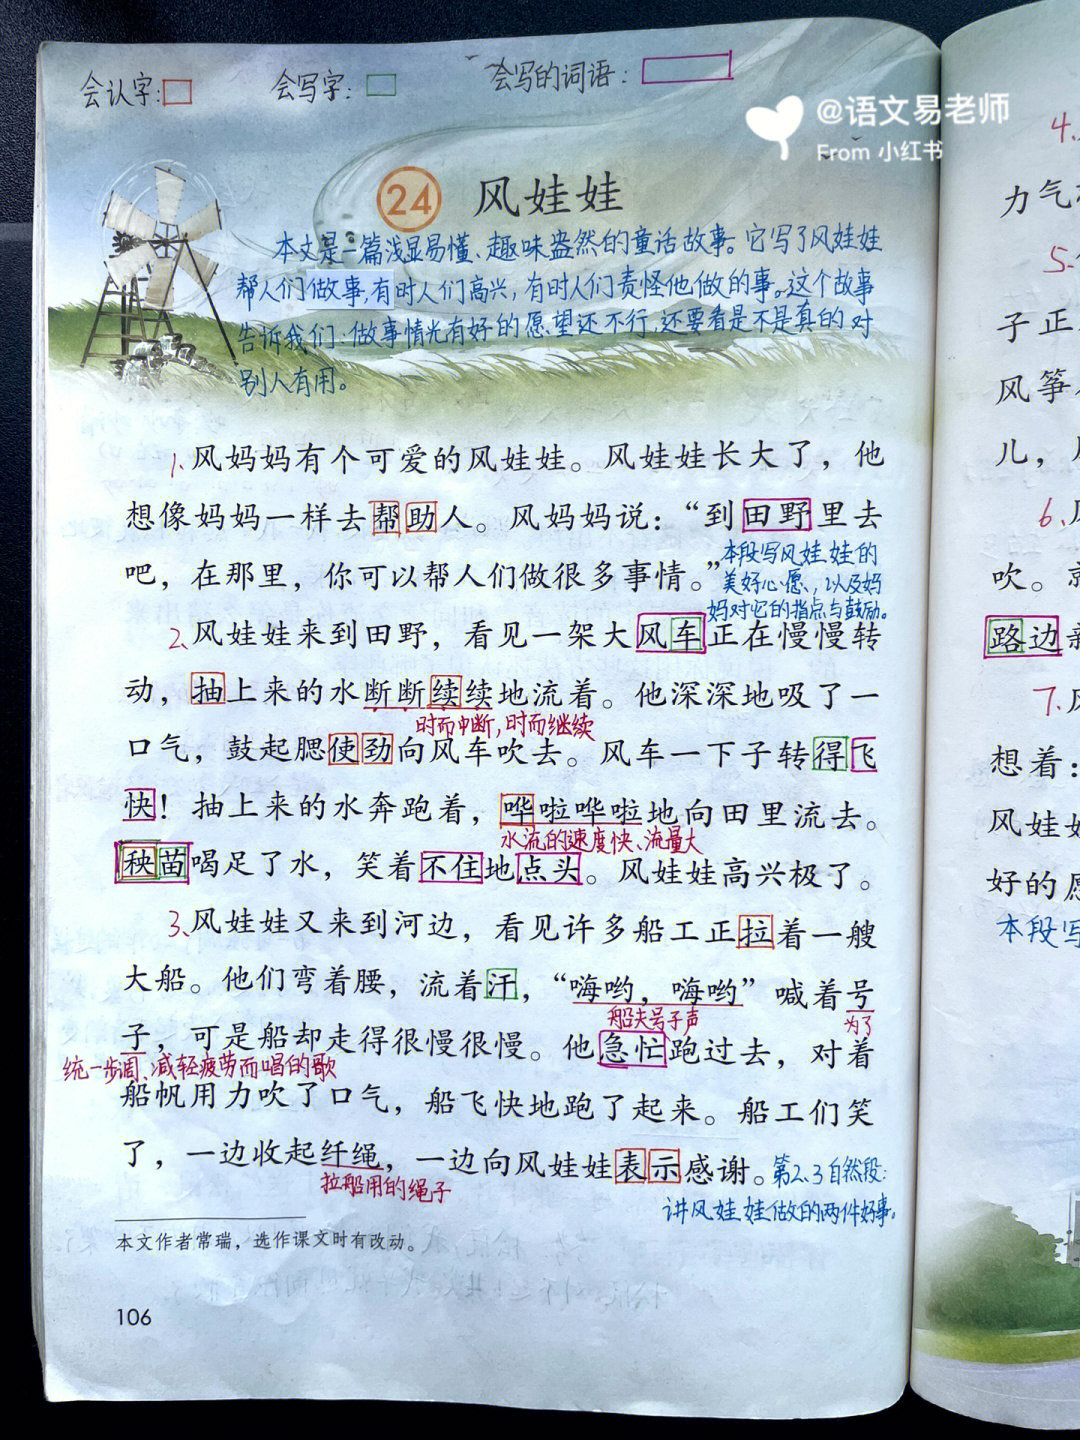 会认字：
会写字：
会写的词语：
@语文易老师
From 小红书
24 风娃娃
本文是一篇浅显易懂、趣味盎然的童话故事。它写了风娃娃
帮人们做事，有时人们高兴，有时人们责怪他做的事。这个故事
告诉我们：做事情光有好的愿望还不行，还要看是不是真的对
别人有用。
1、风妈妈有个可爱的风娃娃。风娃娃长大了，他
想像妈妈一样去帮助人。风妈妈说：“到田野里去
吧，在那里，你可以帮人们做很多事情。”
本段写风娃娃的
美好心愿，以及妈
妈对它的指点与鼓励。
2、风娃娃来到田野，看见一架大风车正在慢慢转
动，抽上来的水断断续续地流着。他深深地吸了一
时而中断，时而继续
口气，鼓起腮使劲向风车吹去。风车一下子转得飞
快！抽上来的水奔跑着，哗啦哗啦地向田里流去。
水流的速度快、流量大
秧苗喝足了水，笑着不住地点头。风娃娃高兴极了。
3、风娃娃又来到河边，看见许多船工正拉着一艘
大船。他们弯着腰，流着汗，“嗨哟，嗨哟”喊着号
船夫号子声
为了
子，可是船却走得很慢很慢。他急忙跑过去，对着
统一步调、减轻疲劳而唱的歌
船帆用力吹了口气，船飞快地跑了起来。船工们笑
了，一边收起纤绳，一边向风娃娃表示感谢。
拉船用的绳子
第2、3自然段：
讲风娃娃做的两件好事。
本文作者常瑞，选作课文时有改动。
106
4、
力气
5、
子正
风筝
儿，
6、
吹。
路边
7、
想着：
风娃
好的
本段写